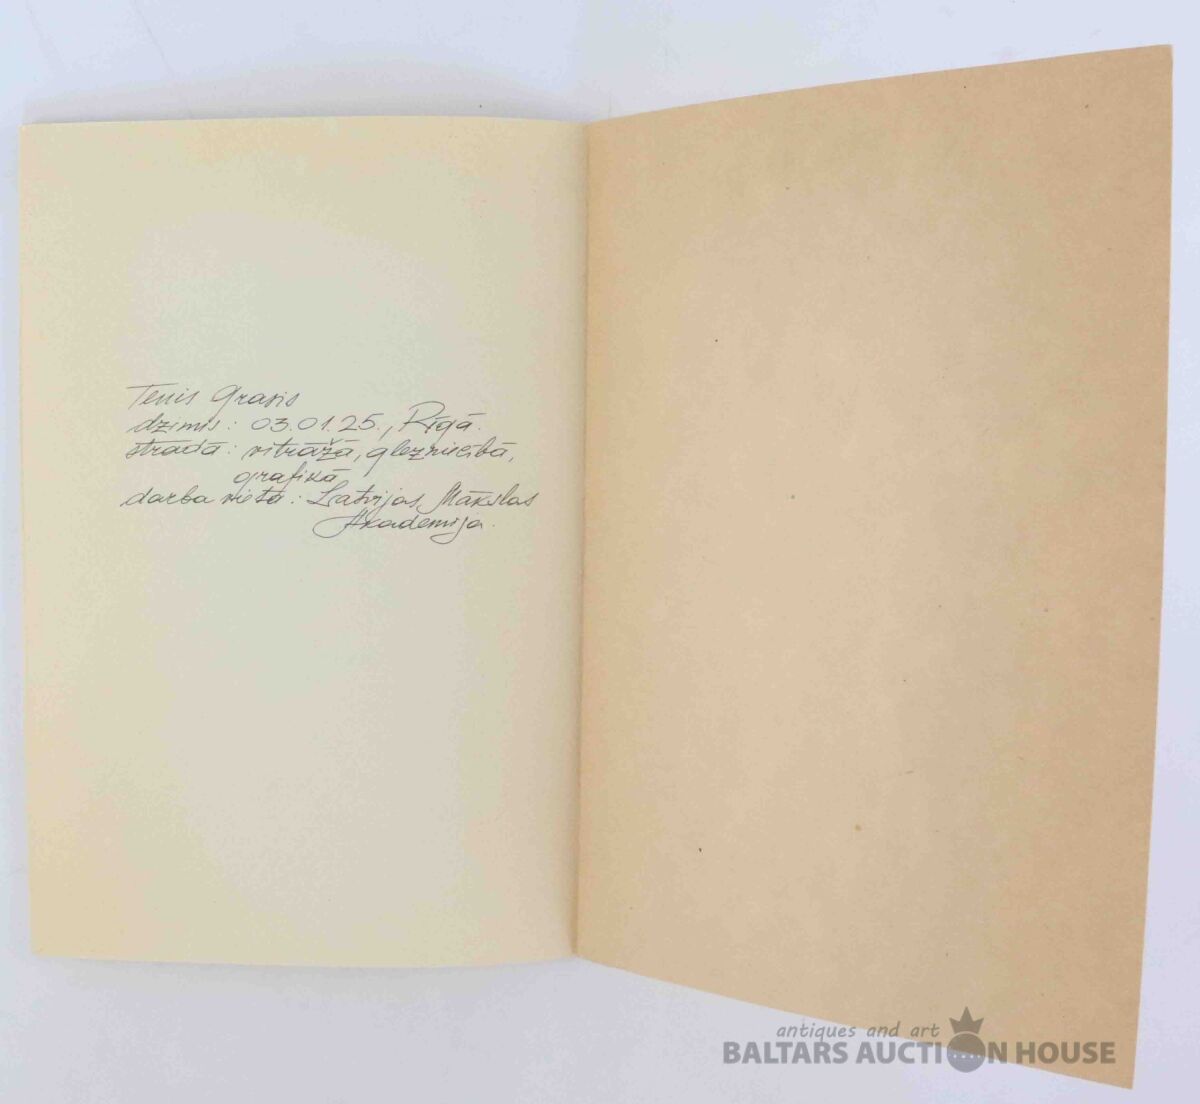 Tenis Grasis
dzimis: 03.01.25., Rīgā.
strādā: vitrāžā, glezniecībā,
grafikā
darba vieta: Latvijas Mākslas
Akademija.
antiques and art
BALTARS AUCTION HOUSE